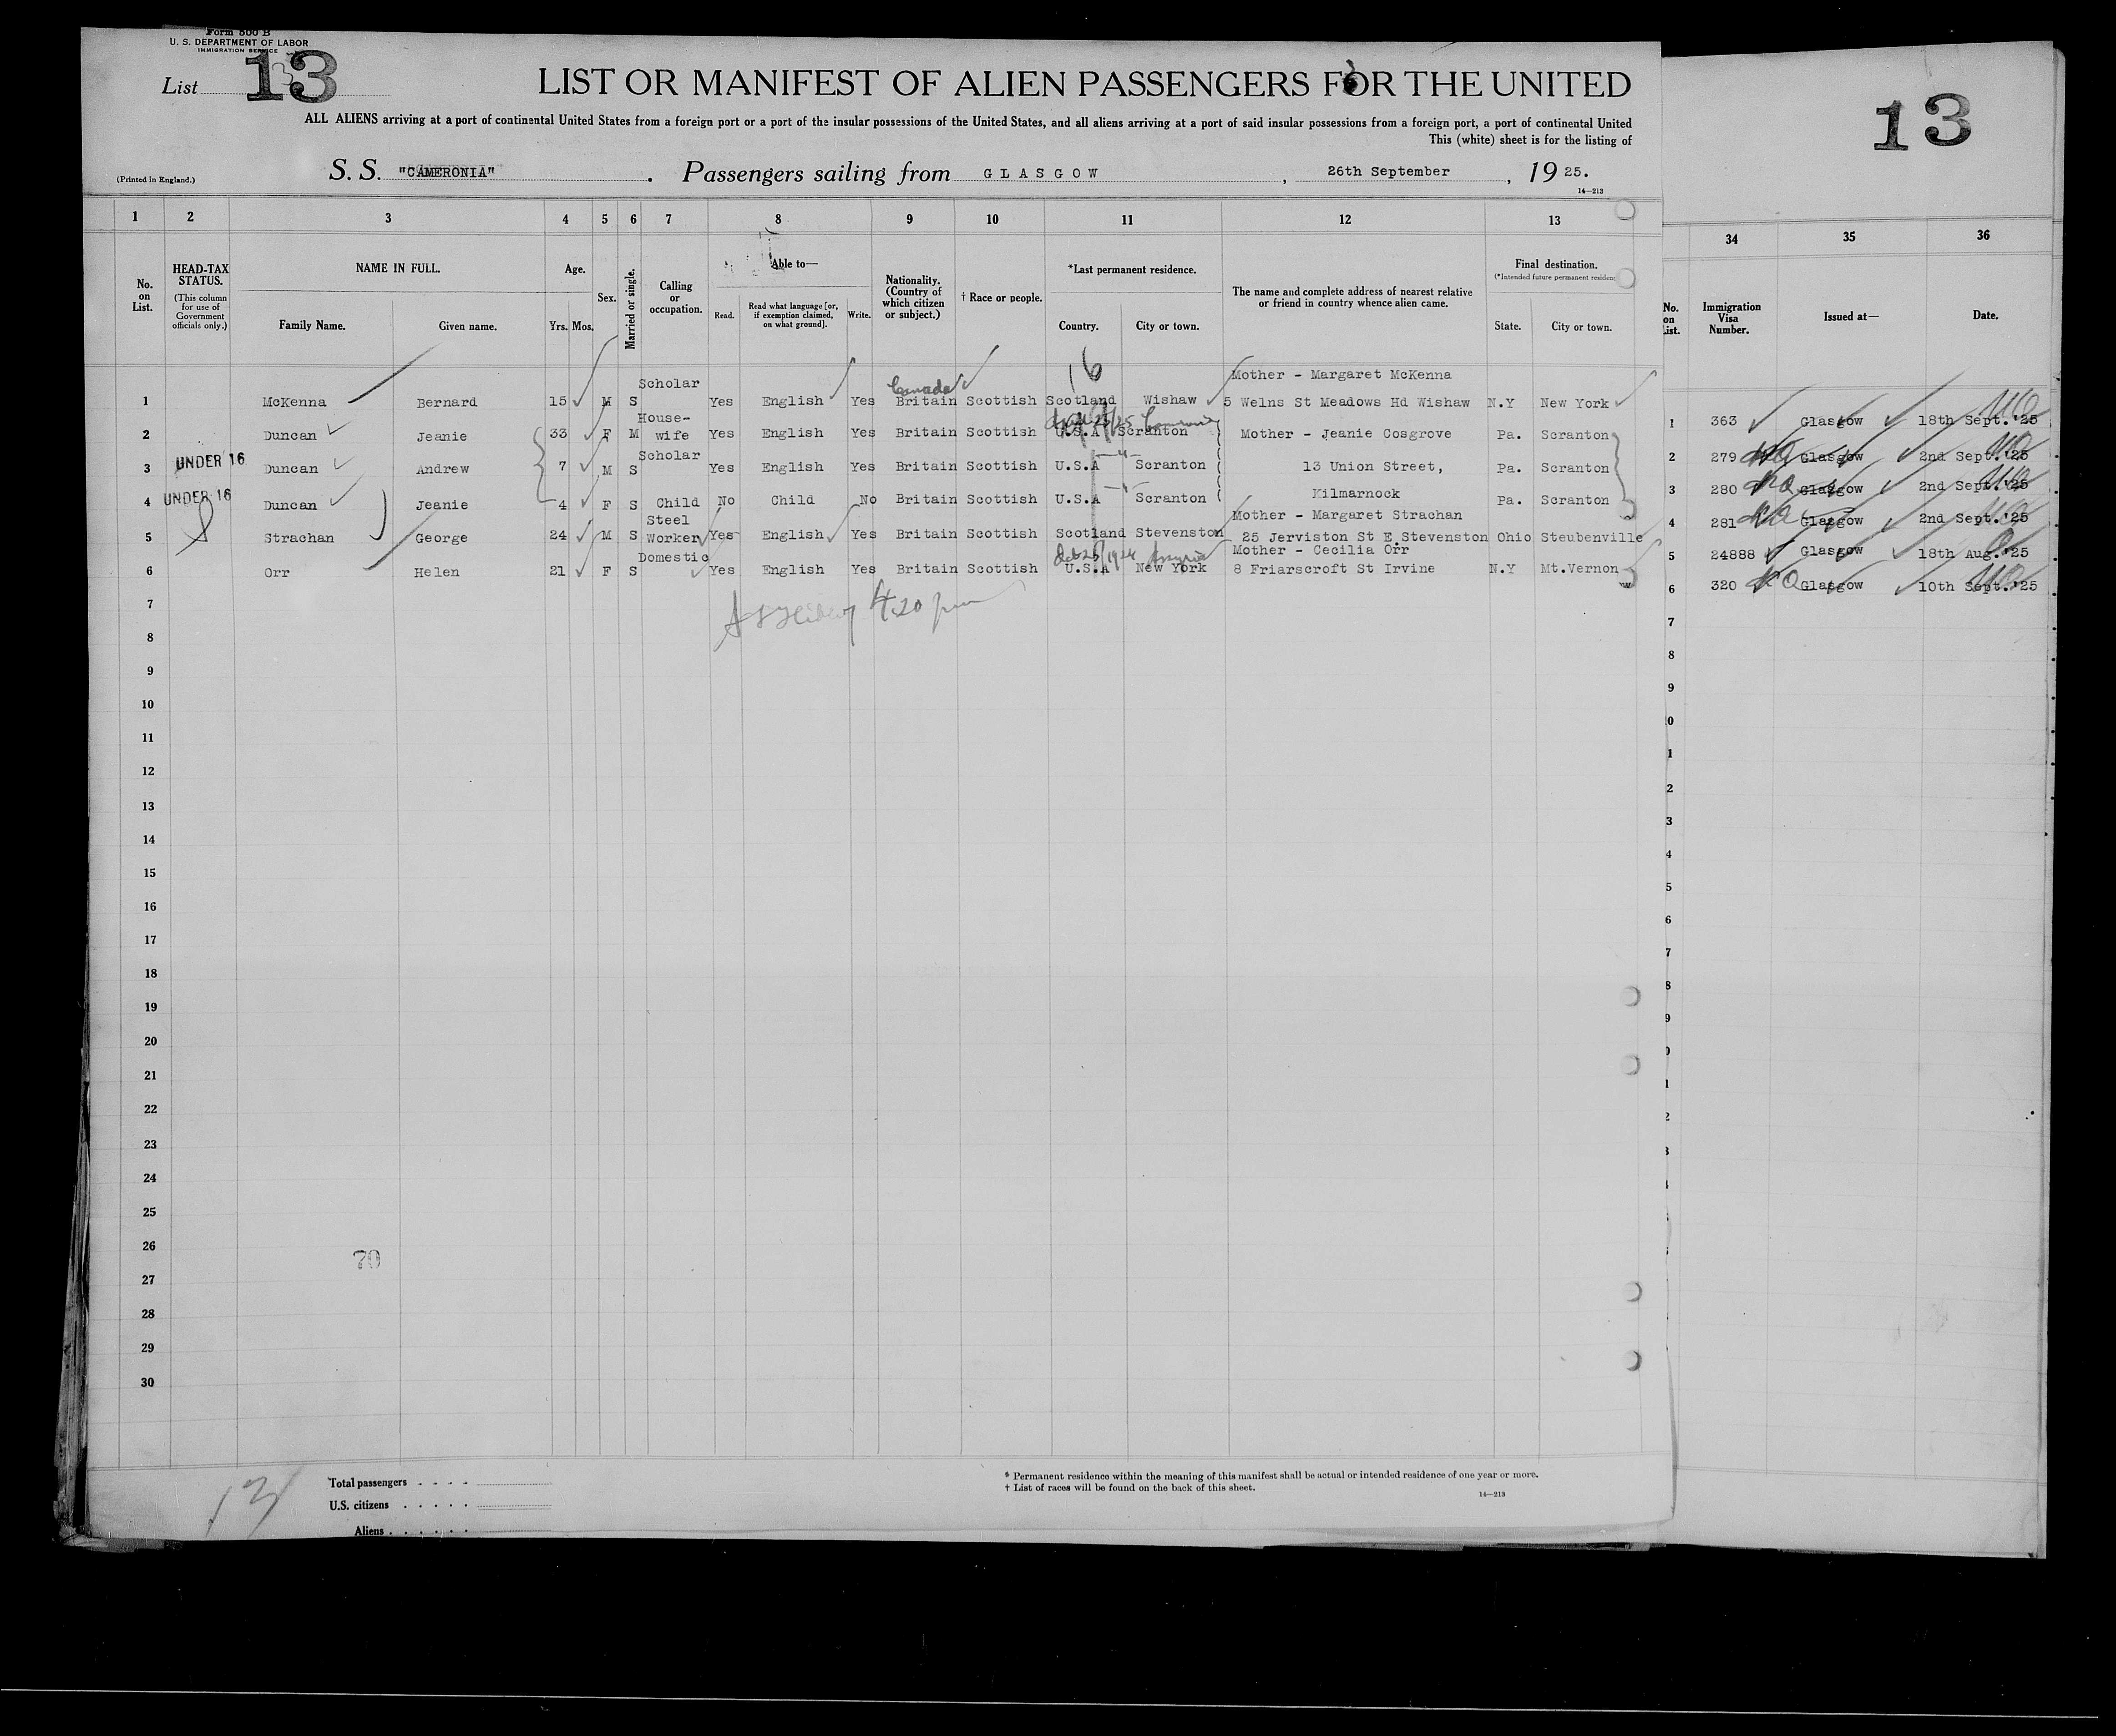 Form 500 B
U. S. DEPARTMENT OF LABOR
IMMIGRATION SERVICE
List 13
LIST OR MANIFEST OF ALIEN PASSENGERS FOR THE UNITED
ALL ALIENS arriving at a port of continental United States from a foreign port or a port of the insular possessions of the United States, and all aliens arriving at a port of said insular possessions from a foreign port, a port of continental United
This (white) sheet is for the listing of
(Printed in England.)
S. S. "CAMERONIA" . Passengers sailing from GLASGOW , 26th September , 19 25.
14—213
13
1 2 3 4 5 6 7 8 9 10 11 12 13
34 35 36
No. on List.
HEAD-TAX STATUS.
(This column for use of Government officials only.)
NAME IN FULL.
Family Name. Given name.
Age.
Yrs. Mos.
Sex.
Married or single.
Calling or occupation.
Able to—
Read. Read what language [or, if exemption claimed, on what ground]. Write.
Nationality. (Country of which citizen or subject.)
† Race or people.
*Last permanent residence.
Country. City or town.
The name and complete address of nearest relative or friend in country whence alien came.
Final destination.
(*Intended future permanent residence
State. City or town.
No. on List.
Immigration Visa Number.
Issued at—
Date.
16
Canada
Scholar Mother - Margaret McKenna
1 McKenna Bernard 15 M S Yes English Yes Britain Scottish Scotland Wishaw 5 Welns St Meadows Hd Wishaw N.Y New York
House-
2 Duncan Jeanie 33 F M wife Yes English Yes Britain Scottish U.S.A Scranton Mother - Jeanie Cosgrove Pa. Scranton
Scholar
3 UNDER 16 Duncan Andrew 7 M S Yes English Yes Britain Scottish U.S.A Scranton 13 Union Street, Pa. Scranton
4 UNDER 16 Duncan Jeanie 4 F S Child No Child No Britain Scottish U.S.A Scranton Kilmarnock Pa. Scranton
Steel Mother - Margaret Strachan
5 Strachan George 24 M S Worker Yes English Yes Britain Scottish Scotland Stevenston 25 Jerviston St E Stevenston Ohio Steubenville
Domestic Mother - Cecilia Orr
6 Orr Helen 21 F S Yes English Yes Britain Scottish U.S.A New York 8 Friarscroft St Irvine N.Y Mt.Vernon
4.20 pm
7
8
9
10
11
12
13
14
15
16
17
18
19
20
21
22
23
24
25
26
27
28
29
30
70
1 363 Glasgow 18th Sept.'25
2 279 Glasgow 2nd Sept.'25
3 280 Glasgow 2nd Sept.'25
4 281 Glasgow 2nd Sept.'25
5 24888 Glasgow 18th Aug.'25
6 320 Glasgow 10th Sept.'25
7
8
9
0
1
2
3
4
5
6
7
8
9
13
Total passengers . . . .
U.S. citizens . . . . .
Aliens . . . . . .
* Permanent residence within the meaning of this manifest shall be actual or intended residence of one year or more.
† List of races will be found on the back of this sheet.
14—213